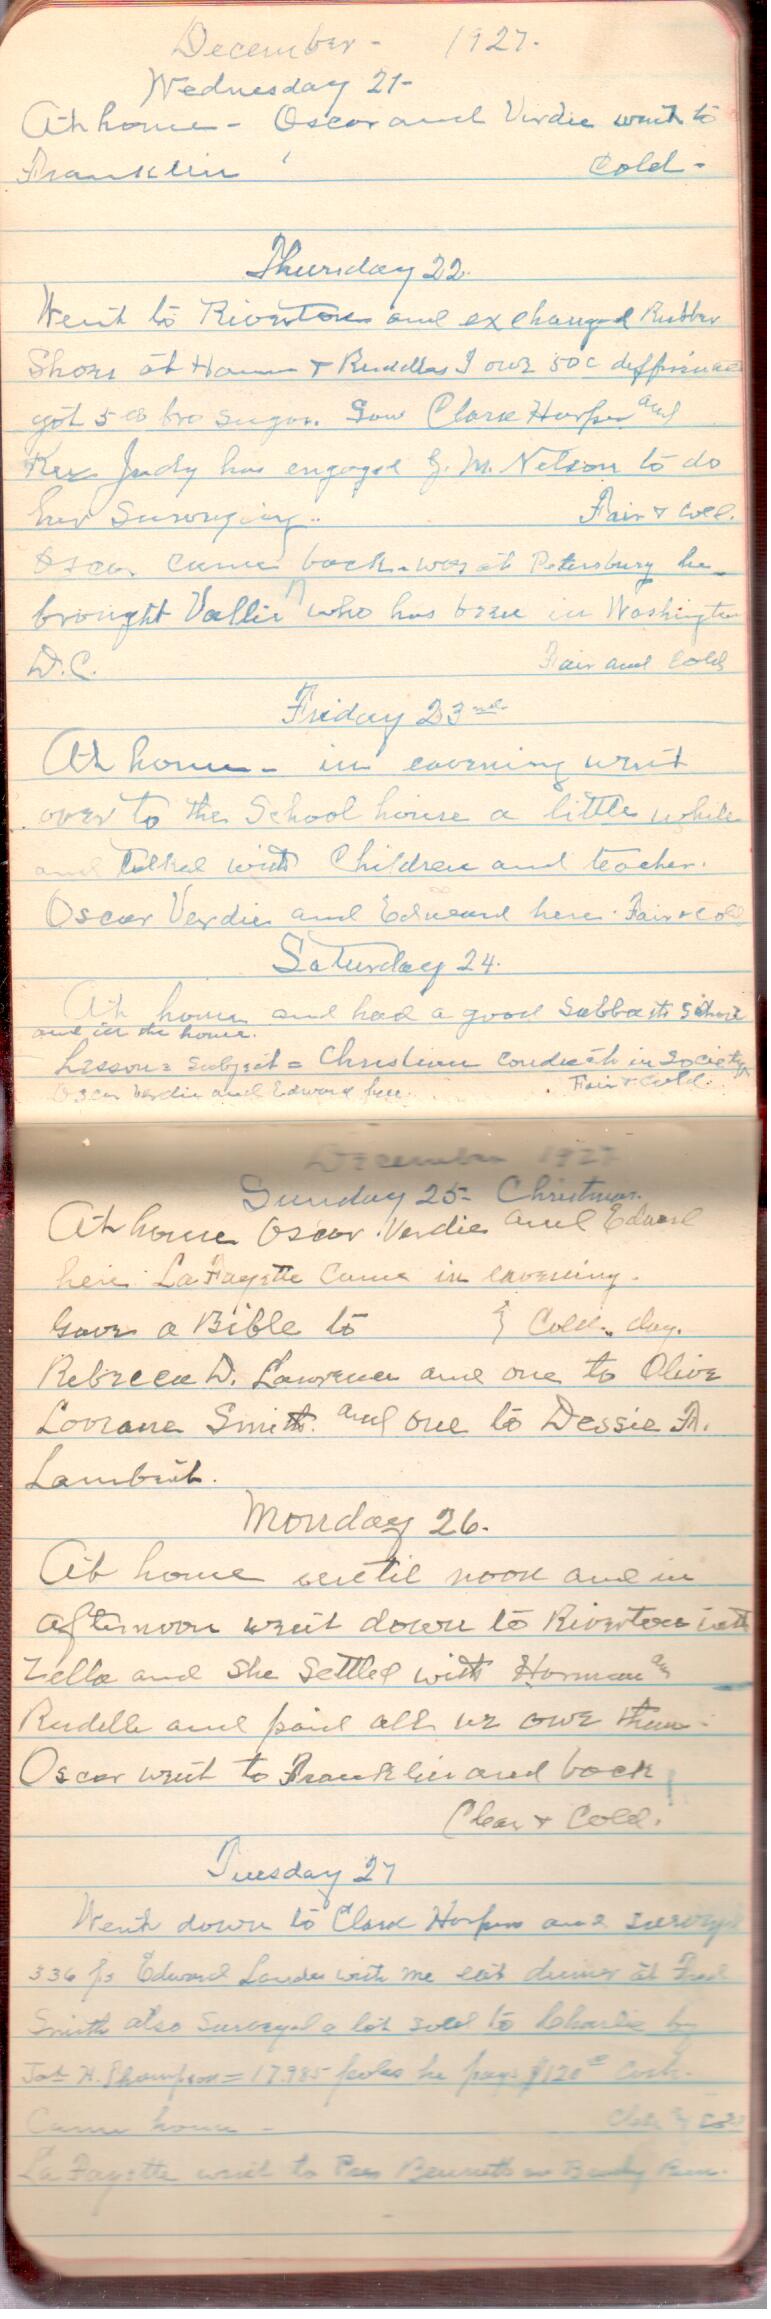 December - 1927.
Wednesday 21-
At home - Oscar and Verdie went to
Franklin Cold -
Thursday 22.
Went to Riverton and exchanged Rubber
Shoes at Harman & Ruddles I owe 50c
got 5 bro sugar. Saw Clark Harper and
Rex Judy has engaged G. M. Nelson to do
her Surveying. Fair & cold.
Oscar came back - was at Petersburg he
brought Vallie who has been in Washington
D.C. Fair and Cold
Friday 23nd
At home - in eavening went
over to the School house a little while
and talked with Children and teacher.
Oscar Verdie and Edward here. Fair & Cold
Saturday 24.
At home and had a good Sabbath School
and in the home.
Lesson = Subject = Christian conduct in Society
Oscar Verdie and Edward here. Fair & Cold.
December 1927
Sunday 25- Christmas.
At home Oscar Verdie and Edward
here. LaFayette Came in eavening.
Gave a Bible to } Cold. day.
Rebecca D. Lawrence and one to Olive
Lorrane Smith. and one to Dessie A.
Lambert.
Monday 26.
At home until noon and in
afternoon went down to Riverton with
Zella and She Settled with Harman and
Rudelle and paid all we owe them.
Oscar went to Franklin and back
Clear & Cold.
Tuesday 27
Went down to Clark Harpers and survey
336 ps Edward Landes with me eat dinner at Fred
Smith also Surveyed a lot sold to Charlie by
H. Thompson = 17.985 poles he pays $120 Cash.
Came home - & Cold
LaFayette went to Bennetts on Brody Run.